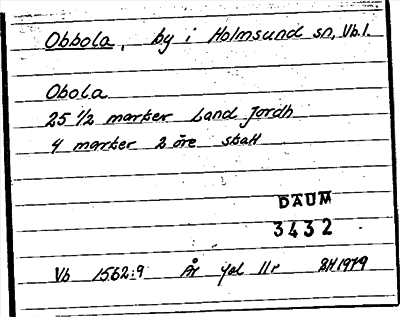 Obbola, by i Holmsund sn, Vb.l.
Obola
25 1/2 marker Land Jordh
4 marker 2 öre skatt
DAUM
3432
Vb 1562:9 År fol 11r BH1979